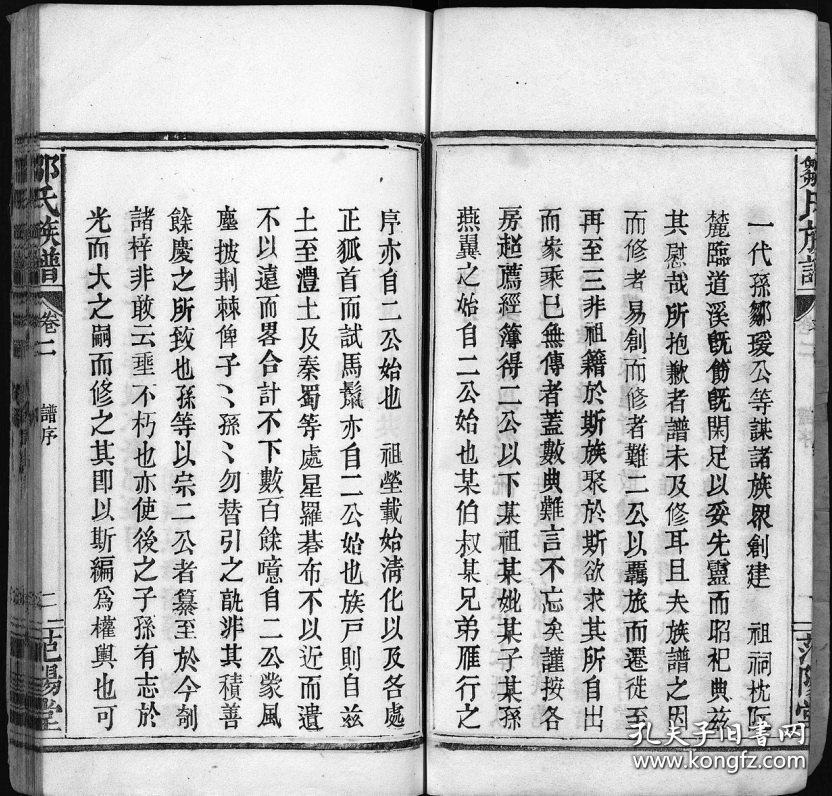 鄒氏族譜
卷二
譜序
范陽堂
一代孫鄒璦公等謀諸族眾創建 祖祠枕阪
麓臨道溪旣飭旣閑足以妥先靈而昭祀典茲
其慰哉所抱歉者譜未及修耳且夫族譜之因
而修者易創而修者難二公以羈旅而遷徙至
再至三非祖籍於斯族聚於斯欲求其所自出
而家乘已無傳者蓋數典難言不忘矣謹按各
房趂薦經簿得二公以下某祖某妣某子某孫
燕翼之始自二公始也某伯叔某兄弟雁行之
序亦自二公始也 祖塋載始淸化以及各處
正狐首而試馬鬣亦自二公始也族戸則自茲
土至澧土及秦蜀等處星羅碁布不以近而遺
不以遠而畧合計不下數百餘噫自二公蒙風
塵披荆棘俾子〻孫〻勿替引之孰非其積善
餘慶之所致也孫等以宗二公者纂至於今剞
諸梓非敢云埀不朽也亦使後之子孫有志於
光而大之嗣而修之其卽以斯編爲權輿也可
鄒氏族譜
卷二
譜序
二
范陽堂
孔夫子旧书网
kongfz.com